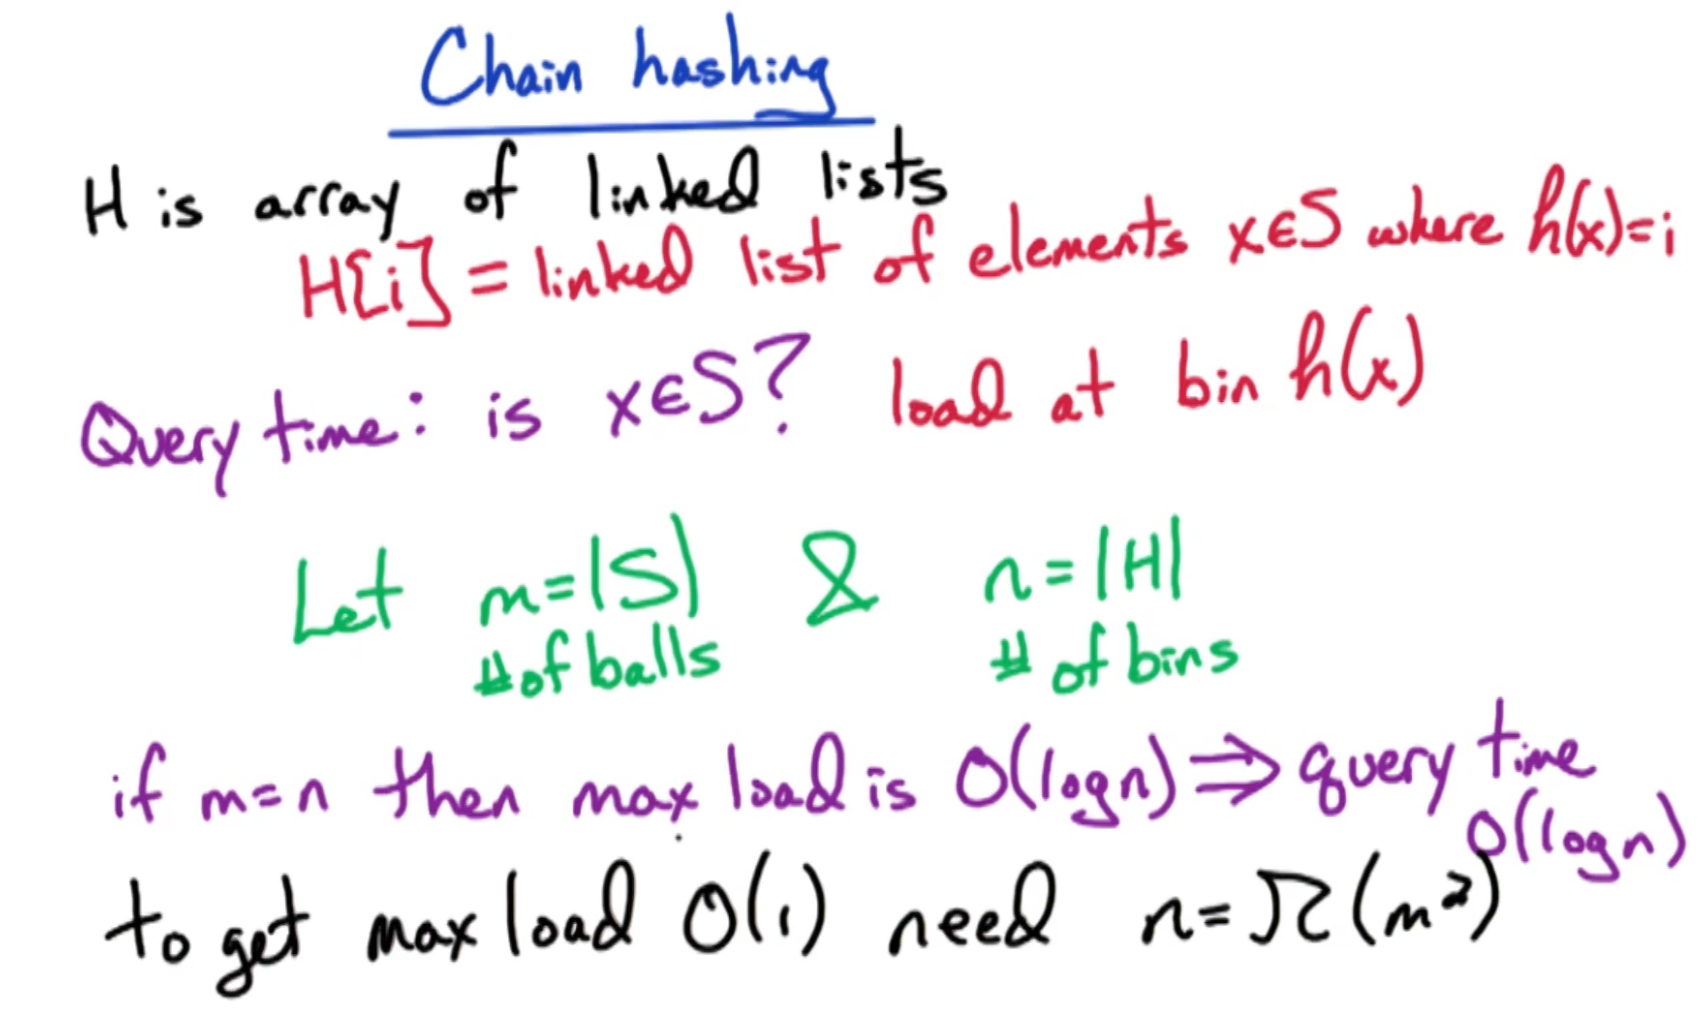 Chain hashing
H is array of linked lists
H[i] = linked list of elements x∈S where h(x)=i
Query time: is x∈S? load at bin h(x)
Let m=|S| & n=|H|
# of balls # of bins
if m=n then max load is O(log n) ⇒ query time
O(log n)
to get max load O(1) need n=Ω(m²)